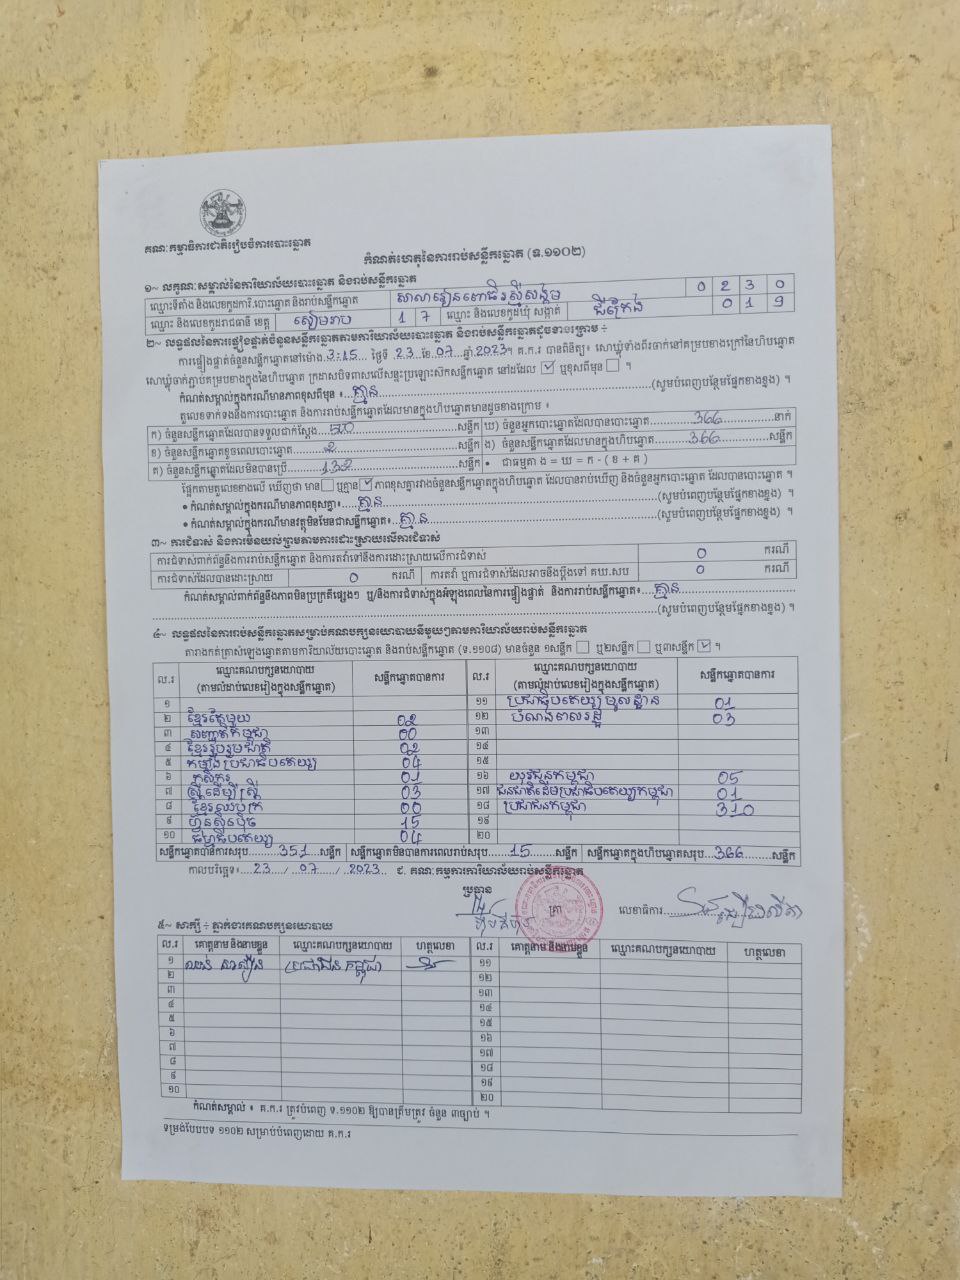 គណៈកម្មាធិការជាតិរៀបចំការបោះឆ្នោត
កំណត់ហេតុនៃការរាប់សន្លឹកឆ្នោត (ទ.១១០២)
១~ លក្ខណៈសម្គាល់នៃការិយាល័យបោះឆ្នោត និងរាប់សន្លឹកឆ្នោត
ឈ្មោះទីតាំង និងលេខកូដការិ.បោះឆ្នោតនិងរាប់សន្លឹកឆ្នោត 0 2 3 0
ឈ្មោះ និងលេខកូដរាជធានី ខេត្ត សៀមរាប 1 7 ឈ្មោះ និងលេខកូដឃុំ សង្កាត់ ជីក្រែង 0 1 9
២~ លទ្ធផលនៃការផ្ទៀងផ្ទាត់ចំនួនសន្លឹកឆ្នោតតាមការិយាល័យបោះឆ្នោត និងរាប់សន្លឹកឆ្នោតដូចខាងក្រោម ÷
ការផ្ទៀងផ្ទាត់ចំនួនសន្លឹកឆ្នោតនៅម៉ោង 3:15 ថ្ងៃទី 23 ខែ 07 ឆ្នាំ 2023 ។ គ.ក.រ បានពិនិត្យ៖ សោឃ្លុំទាំងពីរចាក់នៅគម្របខាងក្រៅនៃហិបឆ្នោត
សោឃ្លុំចាក់ភ្ជាប់គម្របខាងក្នុងនៃហិបឆ្នោត ក្រដាសបិទពាសលើសន្ទះប្រឡោះស៊កសន្លឹកឆ្នោត នៅដដែល ✓ ឬខុសពីមុន ។
កំណត់សម្គាល់ក្នុងករណីមានភាពខុសពីមុន ៖ គ្មាន (សូមបំពេញបន្ថែមផ្នែកខាងខ្នង) ។
តួលេខទាក់ទងនឹងការបោះឆ្នោត និងការរាប់សន្លឹកឆ្នោតដែលមានក្នុងហិបឆ្នោតមានដូចខាងក្រោម ៖
ក) ចំនួនសន្លឹកឆ្នោតដែលបានទទួលជាក់ស្តែង 500 សន្លឹក ឃ) ចំនួនអ្នកបោះឆ្នោតដែលបានបោះឆ្នោត 366 នាក់
ខ) ចំនួនសន្លឹកឆ្នោតខូចពេលបោះឆ្នោត 2 សន្លឹក ង) ចំនួនសន្លឹកឆ្នោតដែលមានក្នុងហិបឆ្នោត 366 សន្លឹក
គ) ចំនួនសន្លឹកឆ្នោតដែលមិនបានប្រើ 132 សន្លឹក • ជាធម្មតា ង = ឃ = ក - ( ខ + គ )
ផ្អែកតាមតួលេខខាងលើ ឃើញថា មាន ឬគ្មាន ✓ ភាពខុសគ្នារវាងចំនួនសន្លឹកឆ្នោតក្នុងហិបឆ្នោត ដែលបានរាប់ឃើញ និងចំនួនអ្នកបោះឆ្នោត ដែលបានបោះឆ្នោត ។
• កំណត់សម្គាល់ក្នុងករណីមានភាពខុសគ្នា៖ គ្មាន (សូមបំពេញបន្ថែមផ្នែកខាងខ្នង) ។
• កំណត់សម្គាល់ក្នុងករណីមានវត្ថុមិនមែនជាសន្លឹកឆ្នោត៖ គ្មាន (សូមបំពេញបន្ថែមផ្នែកខាងខ្នង) ។
៣~ ការជំទាស់ និងការមិនយល់ព្រមតាមការដោះស្រាយលើការជំទាស់
ការជំទាស់ពាក់ព័ន្ធនឹងការរាប់សន្លឹកឆ្នោត និងការតវ៉ាទៅនឹងការដោះស្រាយលើការជំទាស់ 0 ករណី
ការជំទាស់ដែលបានដោះស្រាយ 0 ករណី ការតវ៉ា ឬការជំទាស់ដែលអាចនឹងប្តឹងទៅ គឃ.សប 0 ករណី
កំណត់សម្គាល់ពាក់ព័ន្ធនឹងភាពមិនប្រក្រតីផ្សេងៗ ឬ/និងការជំទាស់ក្នុងអំឡុងពេលនៃការផ្ទៀងផ្ទាត់ និងការរាប់សន្លឹកឆ្នោត៖ គ្មាន
(សូមបំពេញបន្ថែមផ្នែកខាងខ្នង) ។
៤~ លទ្ធផលនៃការរាប់សន្លឹកឆ្នោតសម្រាប់គណបក្សនយោបាយនីមួយៗតាមការិយាល័យរាប់សន្លឹកឆ្នោត
តារាងកត់ត្រាសំឡេងឆ្នោតតាមការិយាល័យបោះឆ្នោត និងរាប់សន្លឹកឆ្នោត (ទ.១១០៨) មានចំនួន ១សន្លឹក ឬ២សន្លឹក ឬ៣សន្លឹក ✓ ។
ល.រ ឈ្មោះគណបក្សនយោបាយ (តាមលំដាប់លេខរៀងក្នុងសន្លឹកឆ្នោត) សន្លឹកឆ្នោតបានការ ល.រ ឈ្មោះគណបក្សនយោបាយ (តាមលំដាប់លេខរៀងក្នុងសន្លឹកឆ្នោត) សន្លឹកឆ្នោតបានការ
១ ១១ ប្រជាធិបតេយ្យមូលដ្ឋាន 01
២ ខ្មែរតែមួយ 02 ១២ បំណងពលរដ្ឋ 03
៣ សញ្ជាតិកម្ពុជា 00 ១៣
៤ ខ្មែររួបរួមជាតិ 02 ១៤
៥ កម្លាំងប្រជាធិបតេយ្យ 04 ១៥
៦ កសិករ 01 ១៦ យុវជនកម្ពុជា 05
៧ ស្ត្រីដើម្បីស្ត្រី 03 ១៧ ជនជាតិដើមប្រជាធិបតេយ្យកម្ពុជា 01
៨ ខ្មែរឈប់ក្រ 00 ១៨ ប្រជាជនកម្ពុជា 310
៩ ហ៊្វុនស៊ិនប៉ិច 15 ១៩
១០ ធម្មាធិបតេយ្យ 04 ២០
សន្លឹកឆ្នោតបានការសរុប 351 សន្លឹក សន្លឹកឆ្នោតមិនបានការពេលរាប់សរុប 15 សន្លឹក សន្លឹកឆ្នោតក្នុងហិបឆ្នោតសរុប 366 សន្លឹក
កាលបរិច្ឆេទ៖ 23 / 07 / 2023 ជ. គណៈកម្មការការិយាល័យរាប់សន្លឹកឆ្នោត
ប្រធាន
ត្រា លេខាធិការ
៥~ សាក្សី ÷ ភ្នាក់ងារគណបក្សនយោបាយ
ល.រ គោត្តនាមនិងនាមខ្លួន ឈ្មោះគណបក្សនយោបាយ ហត្ថលេខា ល.រ គោត្តនាមនិងនាមខ្លួន ឈ្មោះគណបក្សនយោបាយ ហត្ថលេខា
១ ប្រជាជនកម្ពុជា ១១
២ ១២
៣ ១៣
៤ ១៤
៥ ១៥
៦ ១៦
៧ ១៧
៨ ១៨
៩ ១៩
១០ ២០
កំណត់សម្គាល់ ៖ គ.ក.រ ត្រូវបំពេញ ទ.១១០២ ឱ្យបានត្រឹមត្រូវ ចំនួន ៣ច្បាប់ ។
ទម្រង់បែបបទ ១១០២ សម្រាប់បំពេញដោយ គ.ក.រ